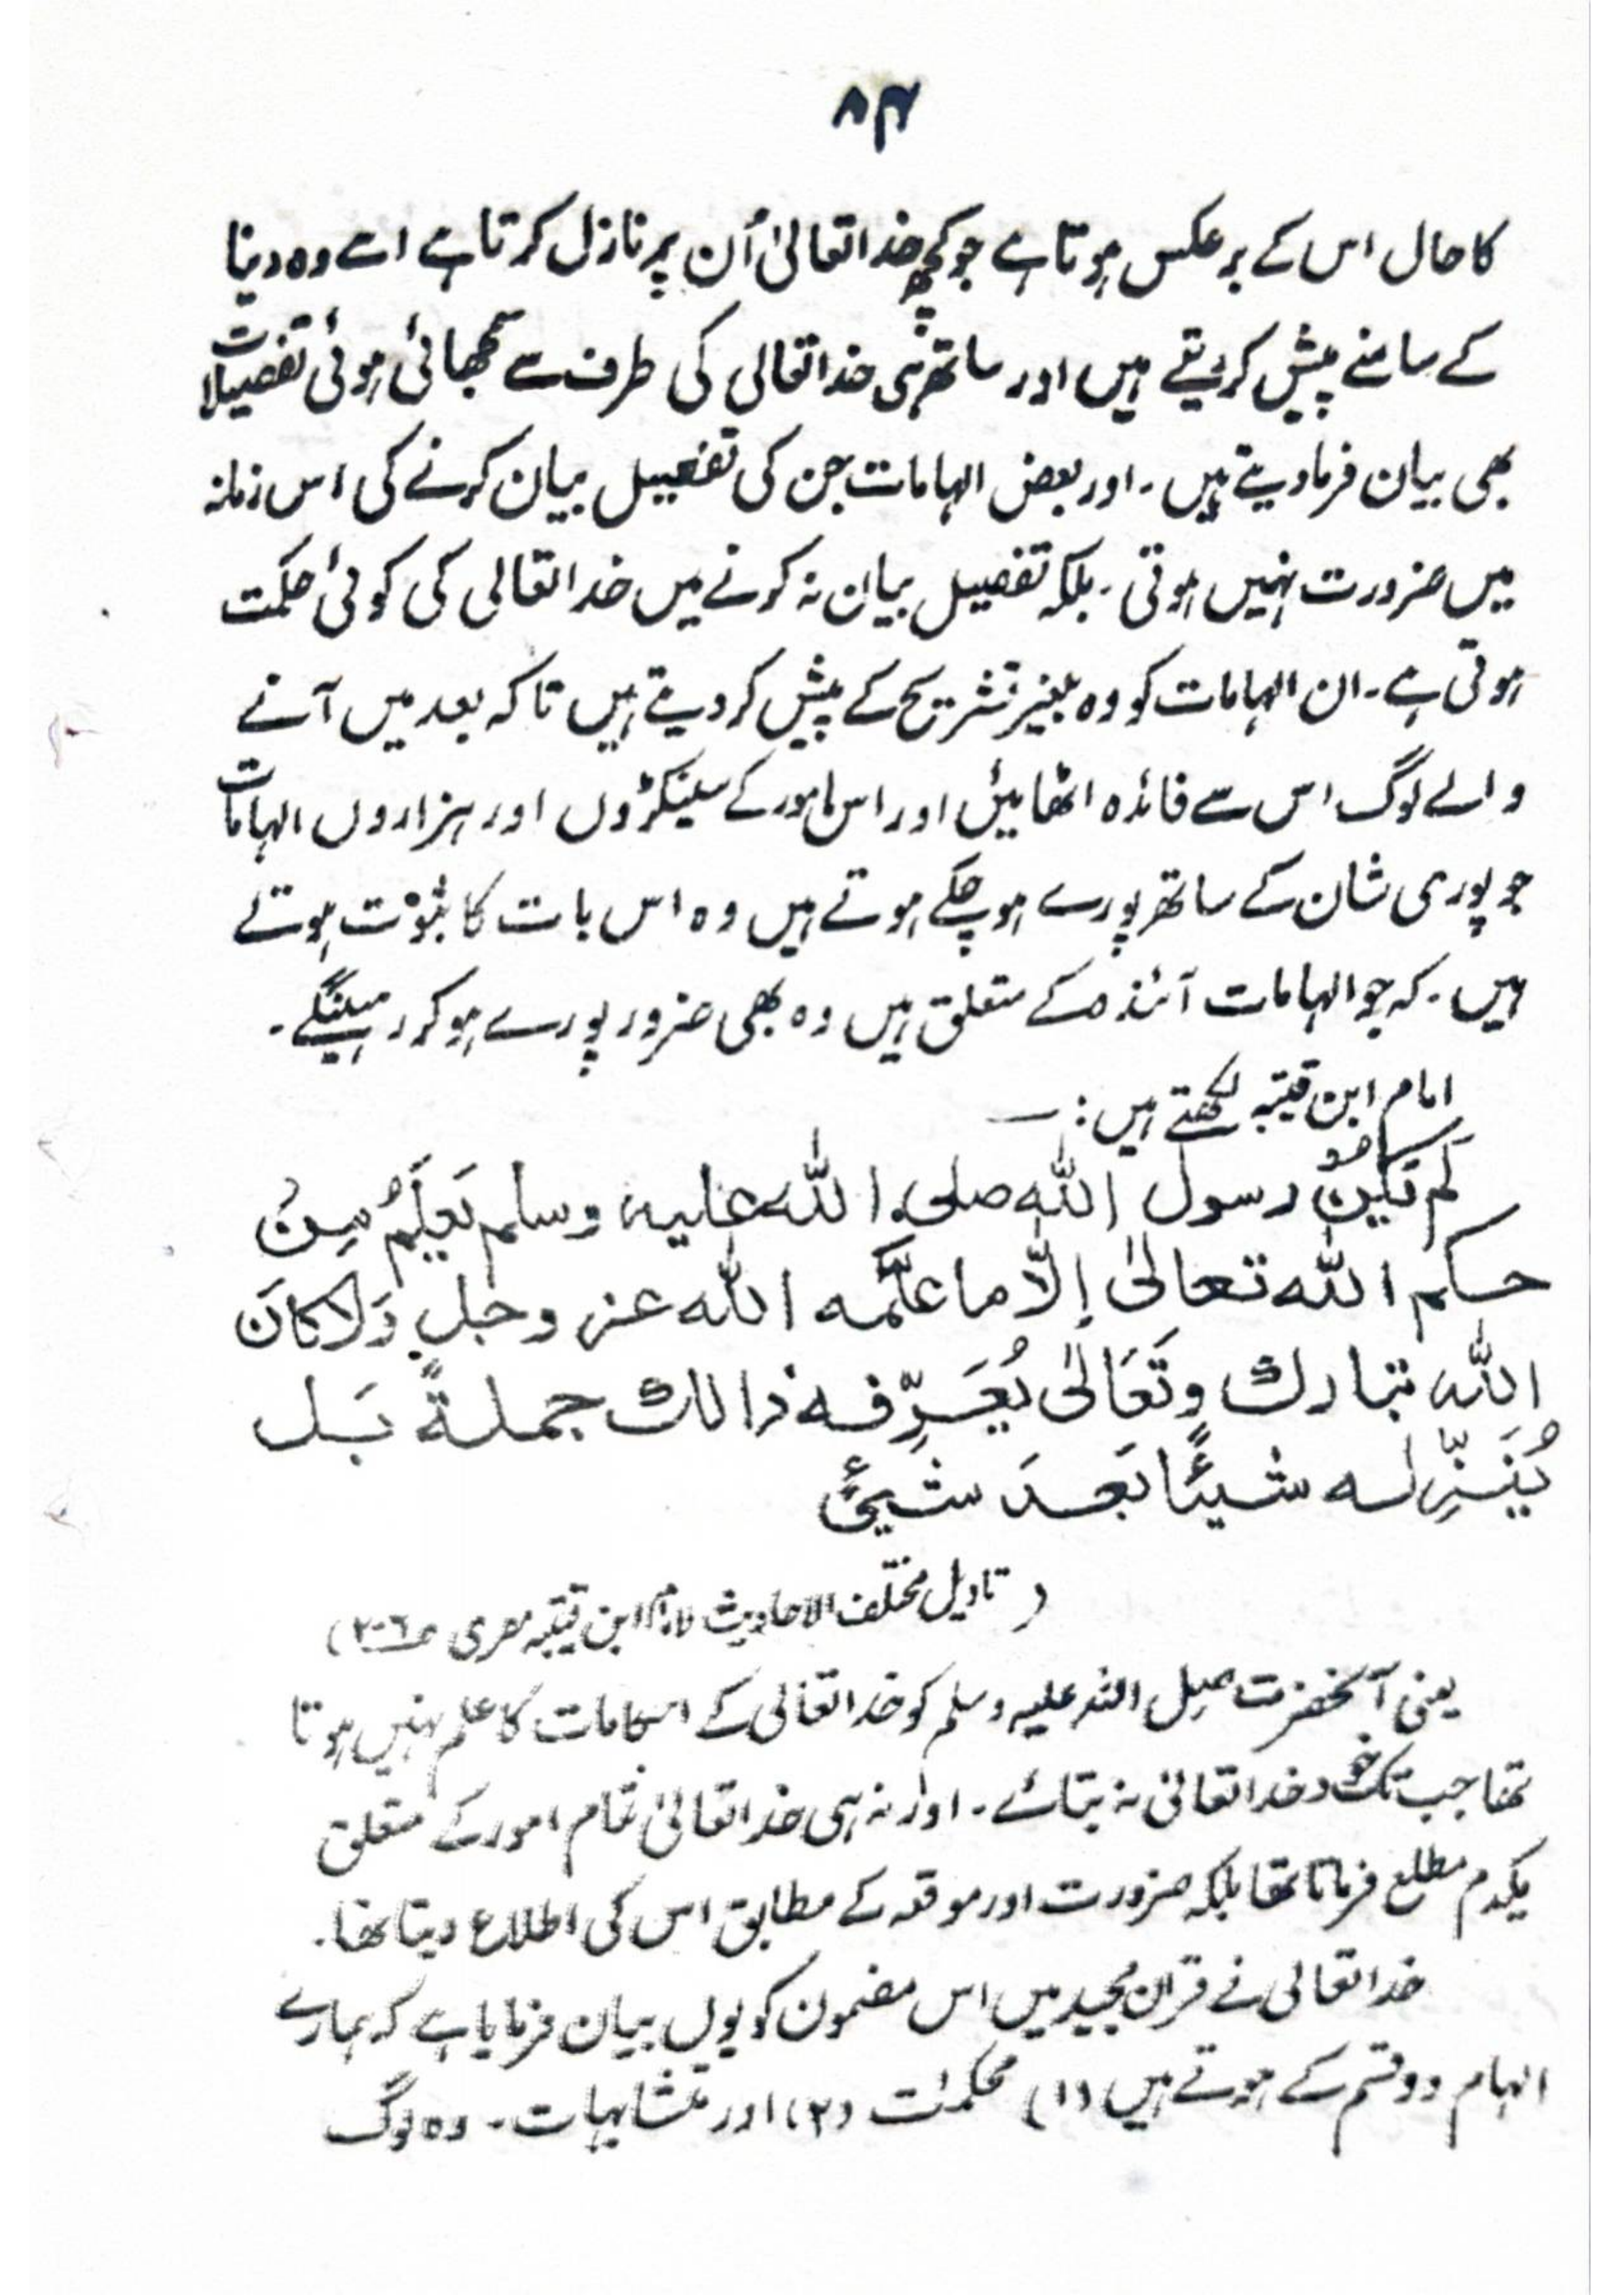 ۸۴
کا حال اس کے برعکس ہوتا ہے جو کچھ خدا تعالیٰ اُن پر نازل کرتا ہے اسے وہ دنیا
کے سامنے پیش کر دیتے ہیں اور ساتھ ہی خدا تعالی کی طرف سے سمجھائی ہوئی تفصیلات
بھی بیان فرما دیتے ہیں۔ اور بعض الہامات جن کی تفصیل بیان کرنے کی اس زمانہ
میں ضرورت نہیں ہوتی۔ بلکہ تفصیل بیان نہ کرنے میں خدا تعالی کی کوئی حکمت
ہوتی ہے۔ ان الہامات کو وہ بغیر تشریح کے پیش کر دیتے ہیں تاکہ بعد میں آنے
والے لوگ اس سے فائدہ اٹھائیں اور اس مامور کے سینکڑوں اور ہزاروں الہامات
جو پوری شان کے ساتھ پورے ہو چکے ہوتے ہیں وہ اس بات کا ثبوت ہوتے
ہیں۔ کہ جو الہامات آئندہ کے متعلق ہیں وہ بھی ضرور پورے ہو کر رہینگے۔
امام ابن قتیبہ لکھتے ہیں :—
لم تکن رسول الله صلی الله علیہ وسلم یَعلَمُ مِن
حکم الله تعالیٰ إلّا ما علّمه الله عز وجل وَلا کانَ
الله تبارك وتَعَالیٰ یُعَرِّفه ذالك جملةً بَل
یُنَزِّلہ شیئًا بَعدَ شیئٍ
(تاویل مختلف الاحادیث لامام ابن قتیبہ مصری ص۲۰۶)
یعنی آنحضرت صلی اللہ علیہ وسلم کو خدا تعالی کے احکامات کا علم نہیں ہوتا
تھا جب تک خود خدا تعالیٰ نہ بتائے۔ اور نہ ہی خدا تعالیٰ تمام امور کے متعلق
یکدم مطلع فرماتا تھا بلکہ ضرورت اور موقعہ کے مطابق اس کی اطلاع دیتا تھا۔
خدا تعالی نے قرآن مجید میں اس مضمون کو یوں بیان فرمایا ہے کہ ہمارے
الہام دو قسم کے ہوتے ہیں (۱) محکمٰت (۲) اور متشابہات۔ وہ لوگ